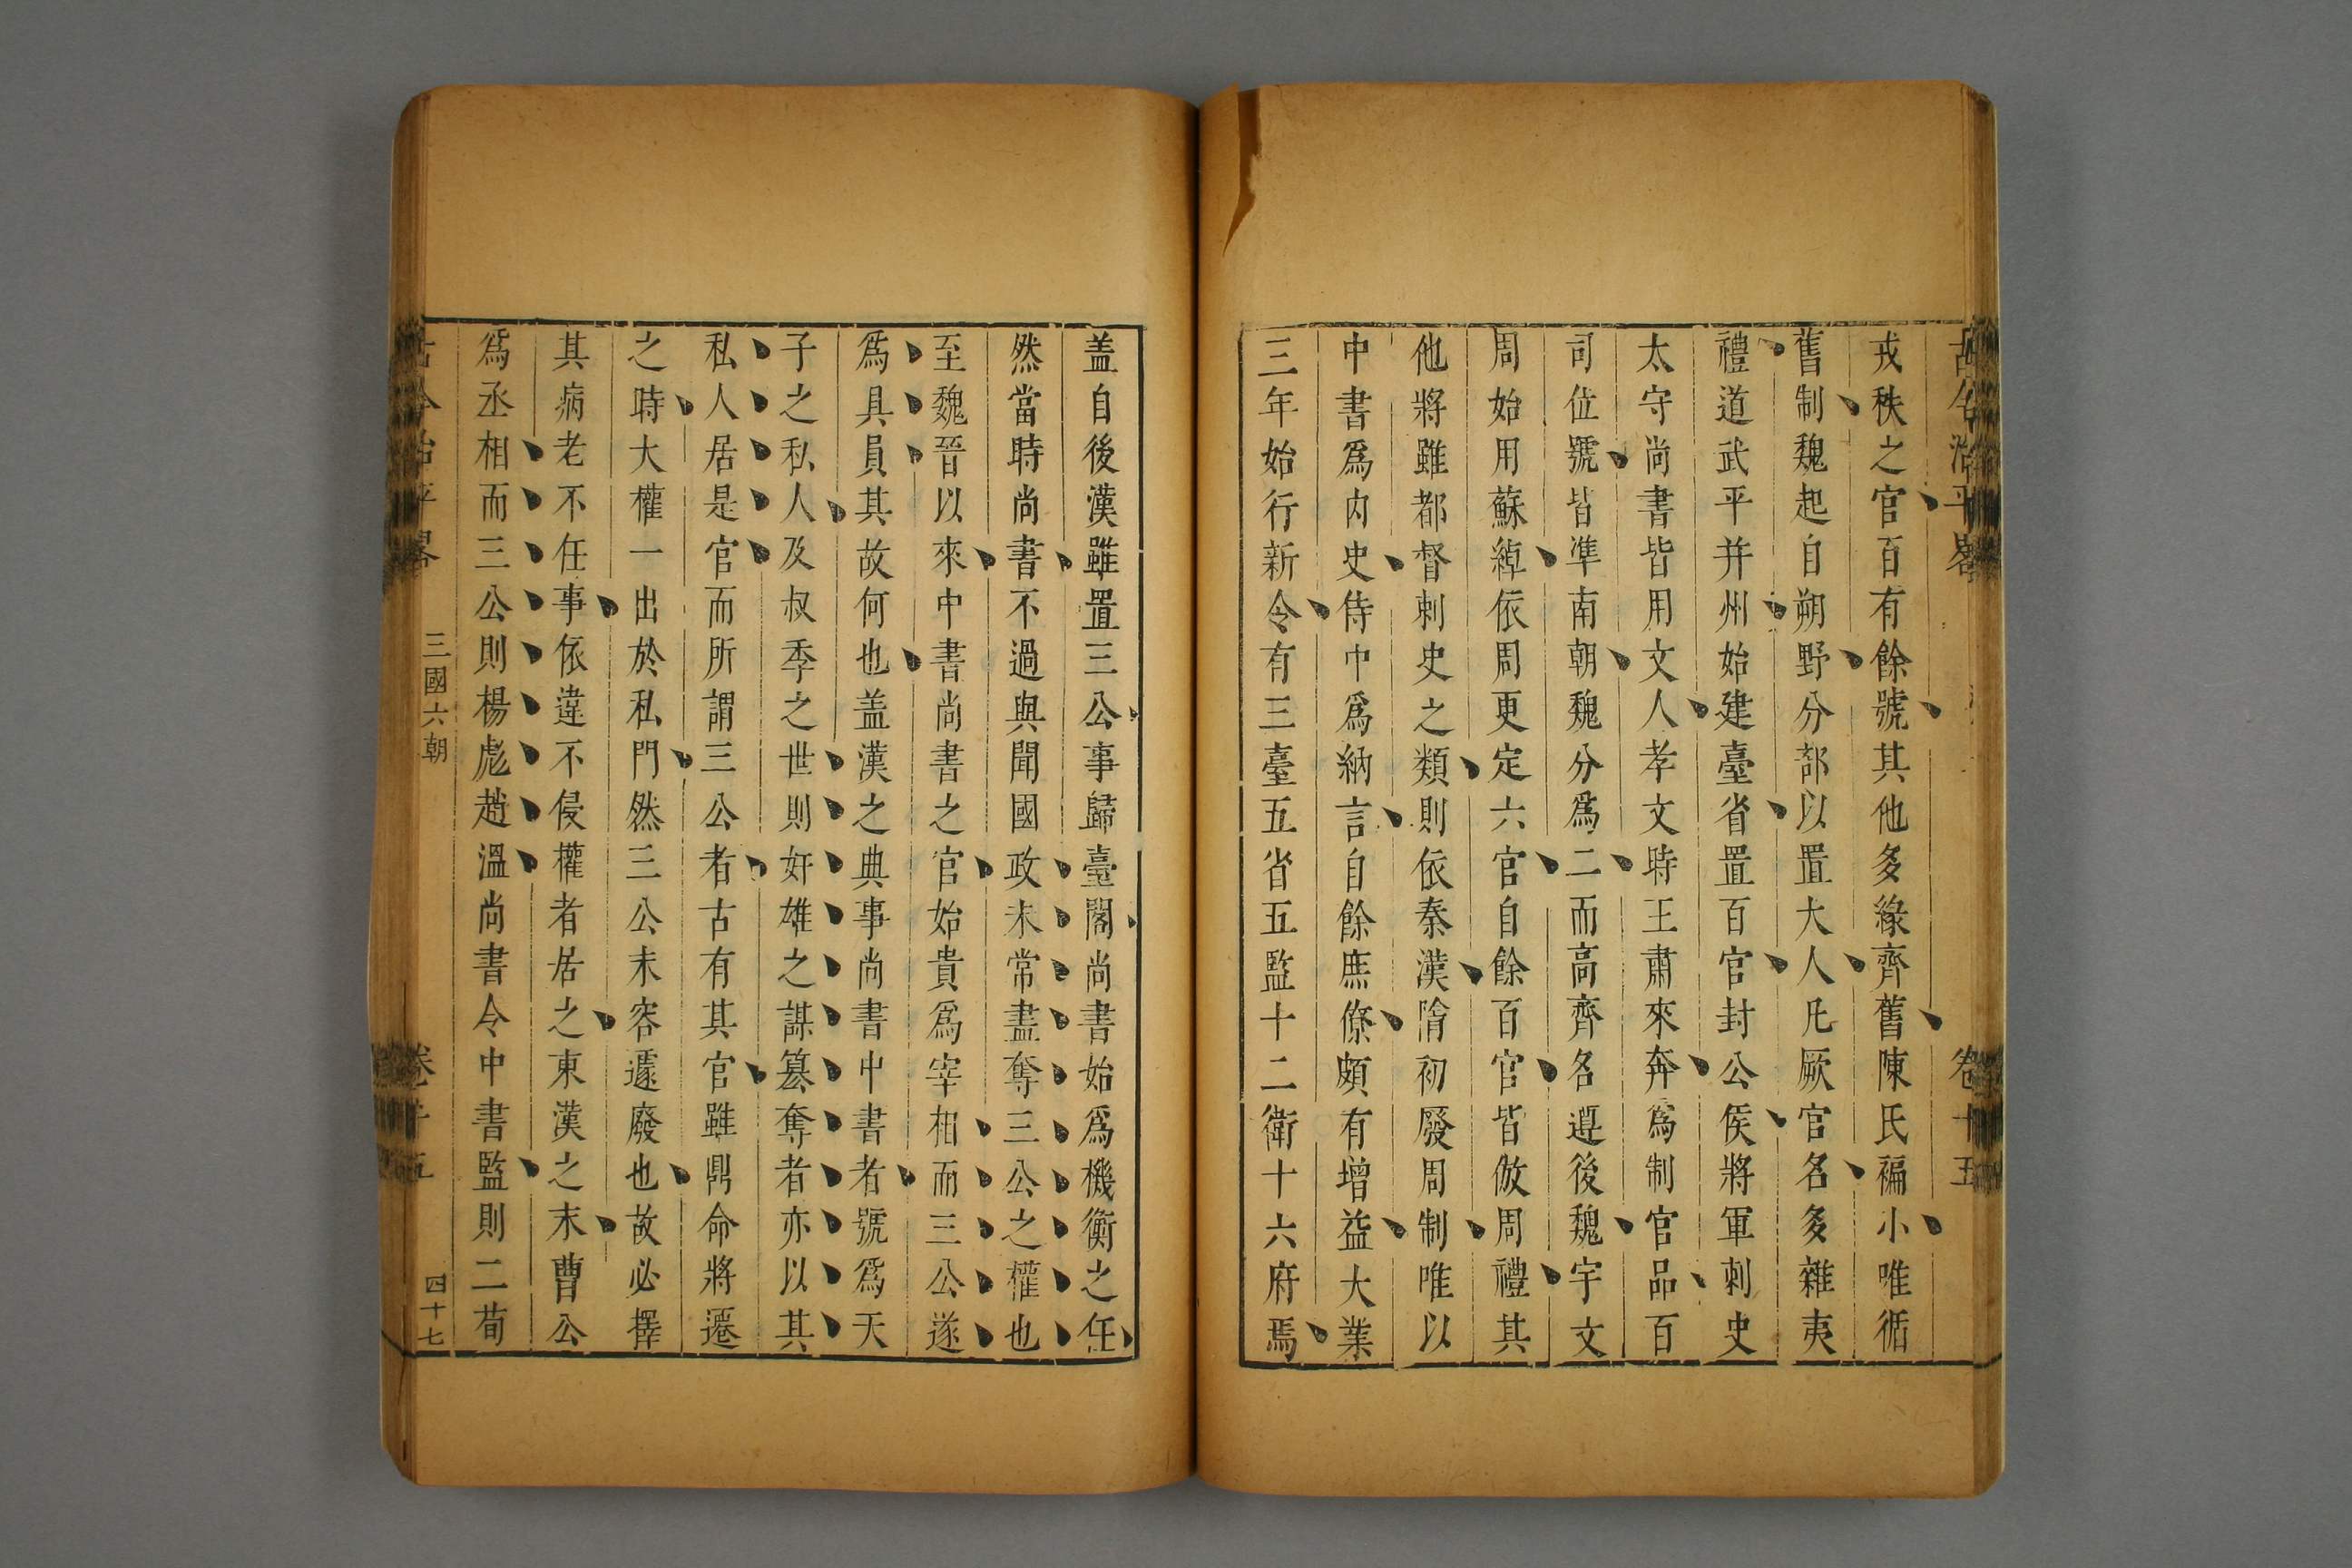 古今治平畧
卷十五
戎秩之官百有餘號其他多緣齊舊陳氏褊小唯循
舊制魏起自朔野分部以置大人凡厥官名多雜夷
禮道武平并州始建臺省置百官封公侯將軍刺史
太守尚書皆用文人孝文時王肅來奔爲制官品百
司位號皆準南朝魏分爲二而高齊名遵後魏宇文
周始用蘇綽依周更定六官自餘百官皆倣周禮其
他將雖都督刺史之類則依秦漢隋初廢周制唯以
中書爲內史侍中爲納言自餘庶僚頗有增益大業
三年始行新令有三臺五省五監十二衛十六府焉
盖自後漢雖置三公事歸臺閣尚書始爲機衡之任
然當時尚書不過與聞國政未常盡奪三公之權也
至魏晉以來中書尚書之官始貴爲宰相而三公遂
爲具員其故何也盖漢之典事尚書中書者號爲天
子之私人及叔季之世則奸雄之謀篡奪者亦以其
私人居是官而所謂三公者古有其官雖鼎命將遷
之時大權一出於私門然三公未容遽廢也故必擇
其病老不任事依違不侵權者居之東漢之末曹公
爲丞相而三公則楊彪趙溫尚書令中書監則二荀
古今治平畧
三國六朝
卷十五
四十七